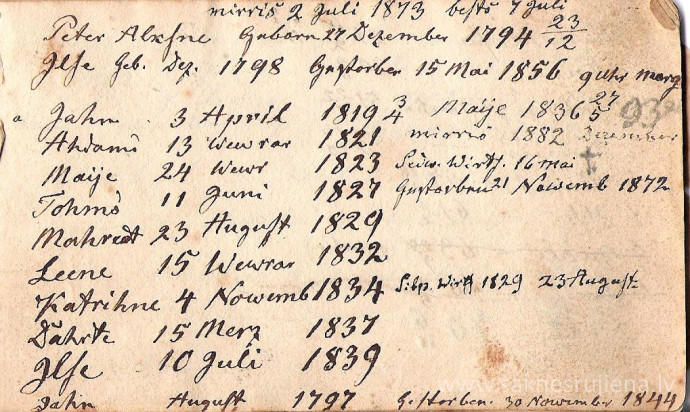 mirris 2 Juli 1873 bests 7 Juli
Peter Alksne Geborn 27 Dezember 1794 23/12
Ilse Geb. Dez. 1798 Gestorben 15 Mai 1856 9 uhr morg
a Jahn 3 April 1819 3/4 Maije 1836 27/5 93
Ahdams 13 Wewrar 1821 mirris 1882 Dezember
Maije 24 Wewr 1823 16 Mai †
Tohms 11 Juni 1827 Gestorben 21 Nowemb 1872
Mahreet 23 August 1829
Leene 15 Wewrar 1832
Katrihne 4 Nowemb 1834 1829 23 August
Dahrte 15 Merz 1837
Ilse 10 Juli 1839
Jahn August 1797 Gestorben. 30 November 1844
www.saknesrujiena.lv